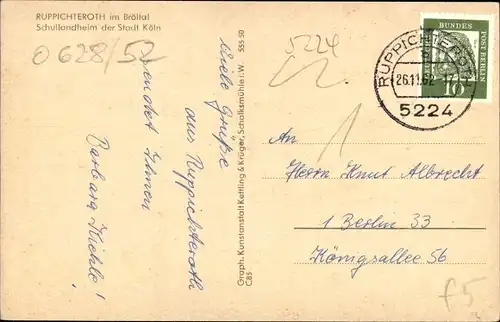 RUPPICHTEROTH im Bröltal
Schullandheim der Stadt Köln
0628/52
5224
Viele Grüße
aus Ruppichteroth
sendet Ihnen
Barbara
Graph. Kunstanstalt Kettling & Krüger, Schalksmühle i. W.
555 50
C85
DEUTSCHE BUNDESPOST BERLIN
10
RUPPICHTEROTH
26.11.62
5224
An
Herrn Knut Albrecht
1 Berlin 33
Königsallee 56
f5